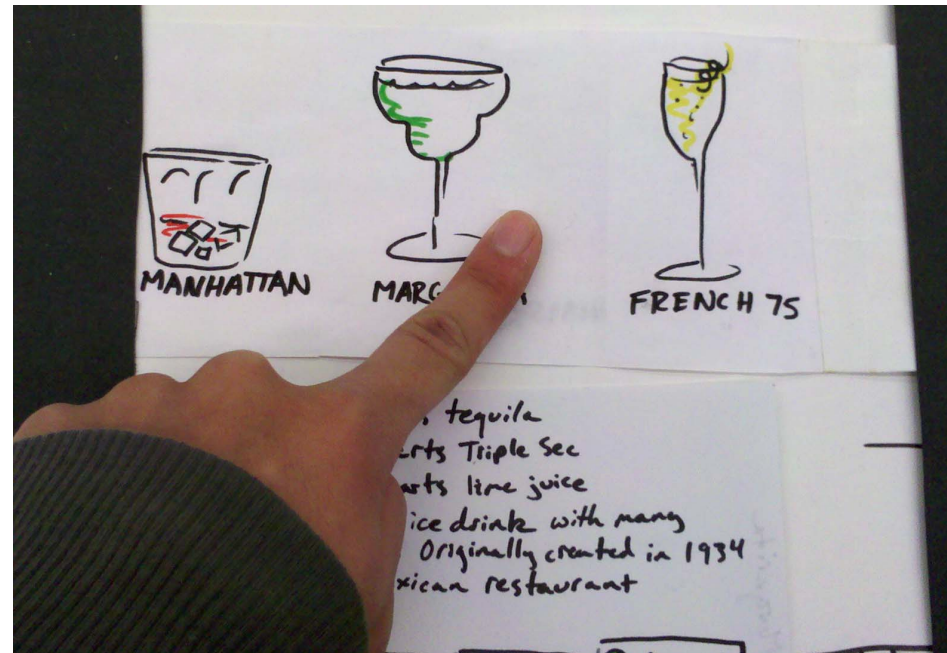 MANHATTAN
FRENCH 75
tequila
Triple Sec
lime juice
ice drink with many
Originally created in 1934
restaurant